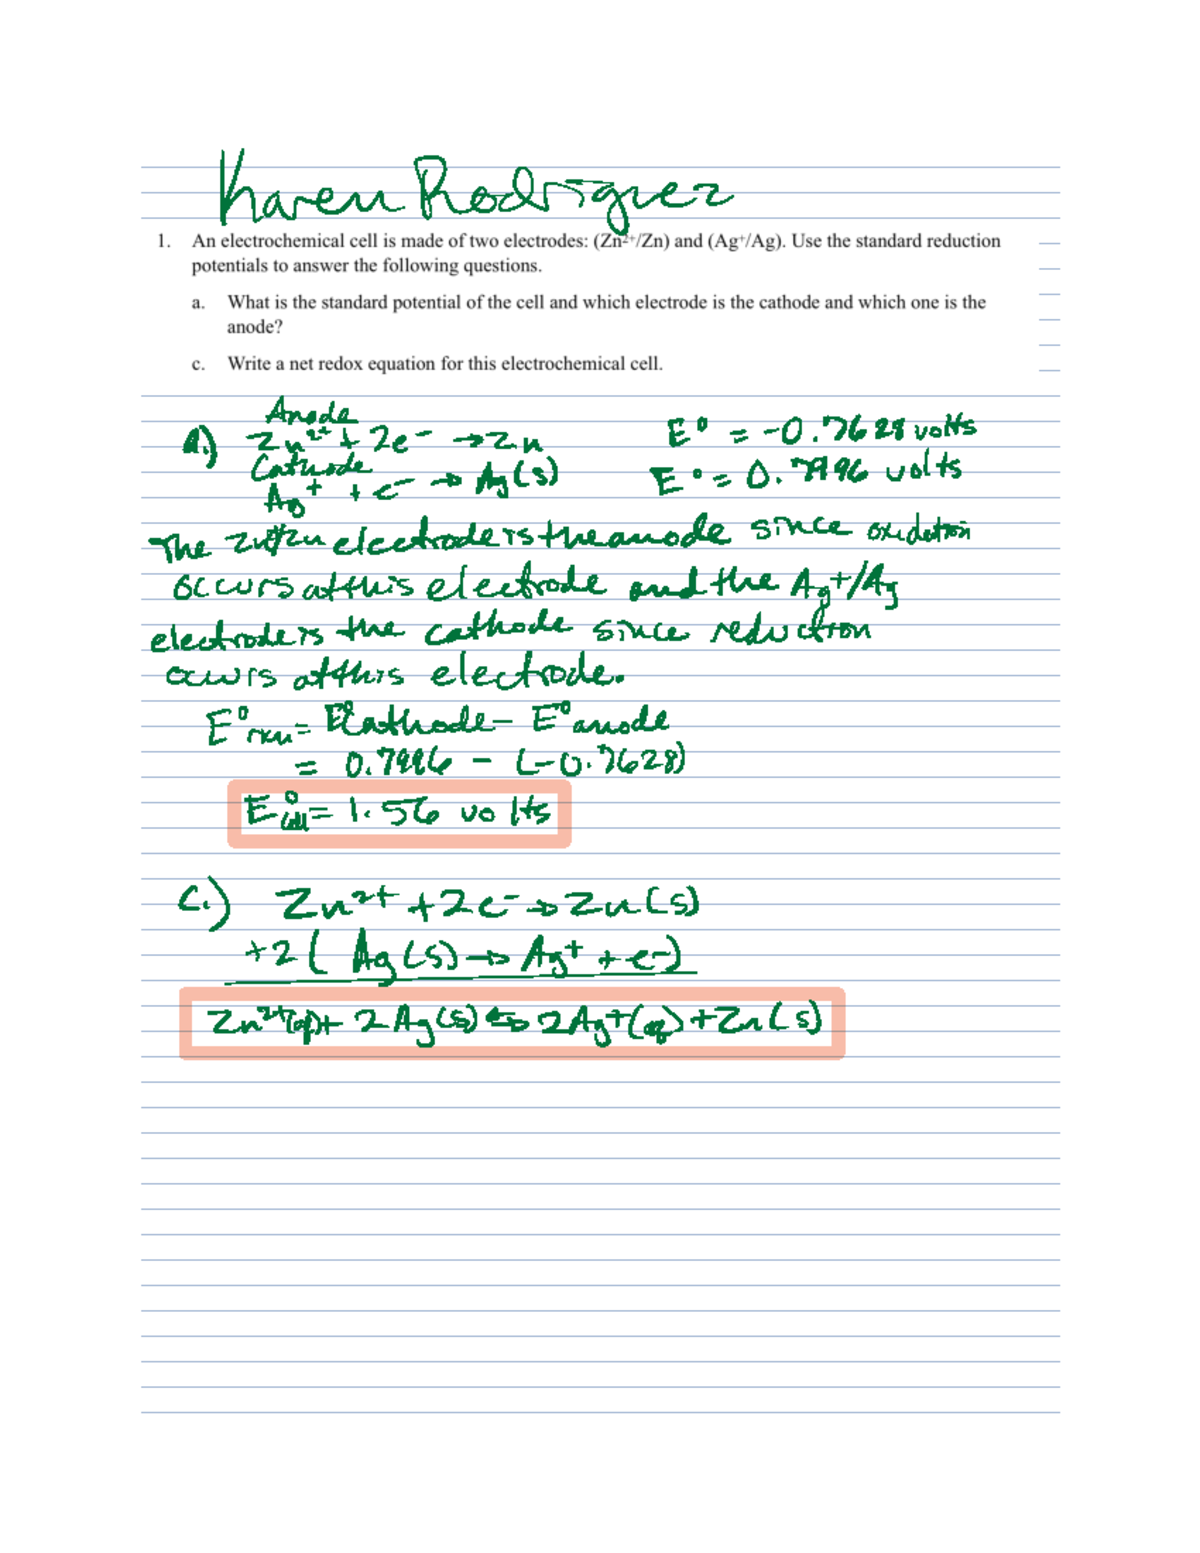 Karen Rodriguez
1. An electrochemical cell is made of two electrodes: (Zn²⁺/Zn) and (Ag⁺/Ag). Use the standard reduction
potentials to answer the following questions.
a. What is the standard potential of the cell and which electrode is the cathode and which one is the
anode?
c. Write a net redox equation for this electrochemical cell.
Anode
a.) Zn²⁺ + 2e⁻ → Zn E° = -0.7628 volts
Cathode
Ag⁺ + e⁻ → Ag(s) E° = 0.7996 volts
The electrode is the anode since oxidation
occurs at this electrode and the Ag⁺/Ag
electrode is the cathode since reduction
occurs at this electrode.
E°rxn = E°cathode - E°anode
= 0.7996 - (-0.7628)
E°cell = 1.56 volts
C.) Zn²⁺ + 2e⁻ → Zn(s)
+2( Ag(s) → Ag⁺ + e⁻)
Zn²⁺(aq) + 2Ag(s) ⇆ 2Ag⁺(aq) + Zn(s)